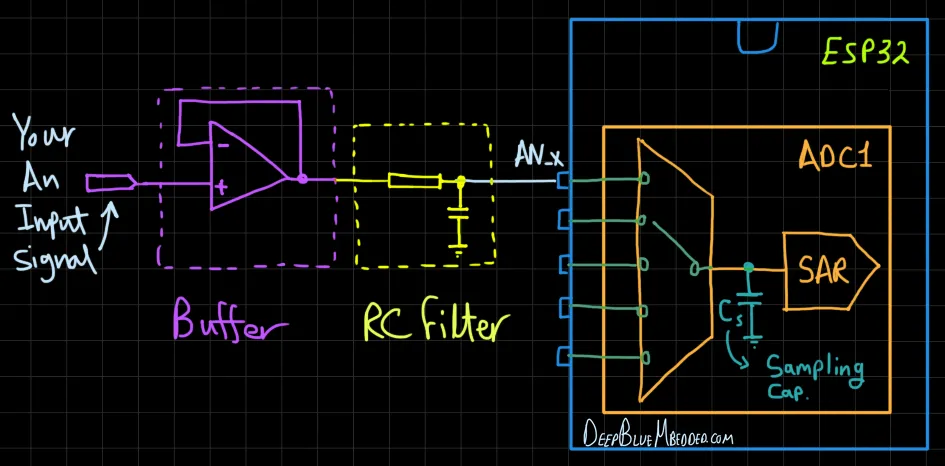 Your
An
Input
Signal
-
+
Buffer
RC Filter
AN_x
ESP32
ADC1
SAR
Cs
Sampling
Cap.
DeepBlueMbedded.com